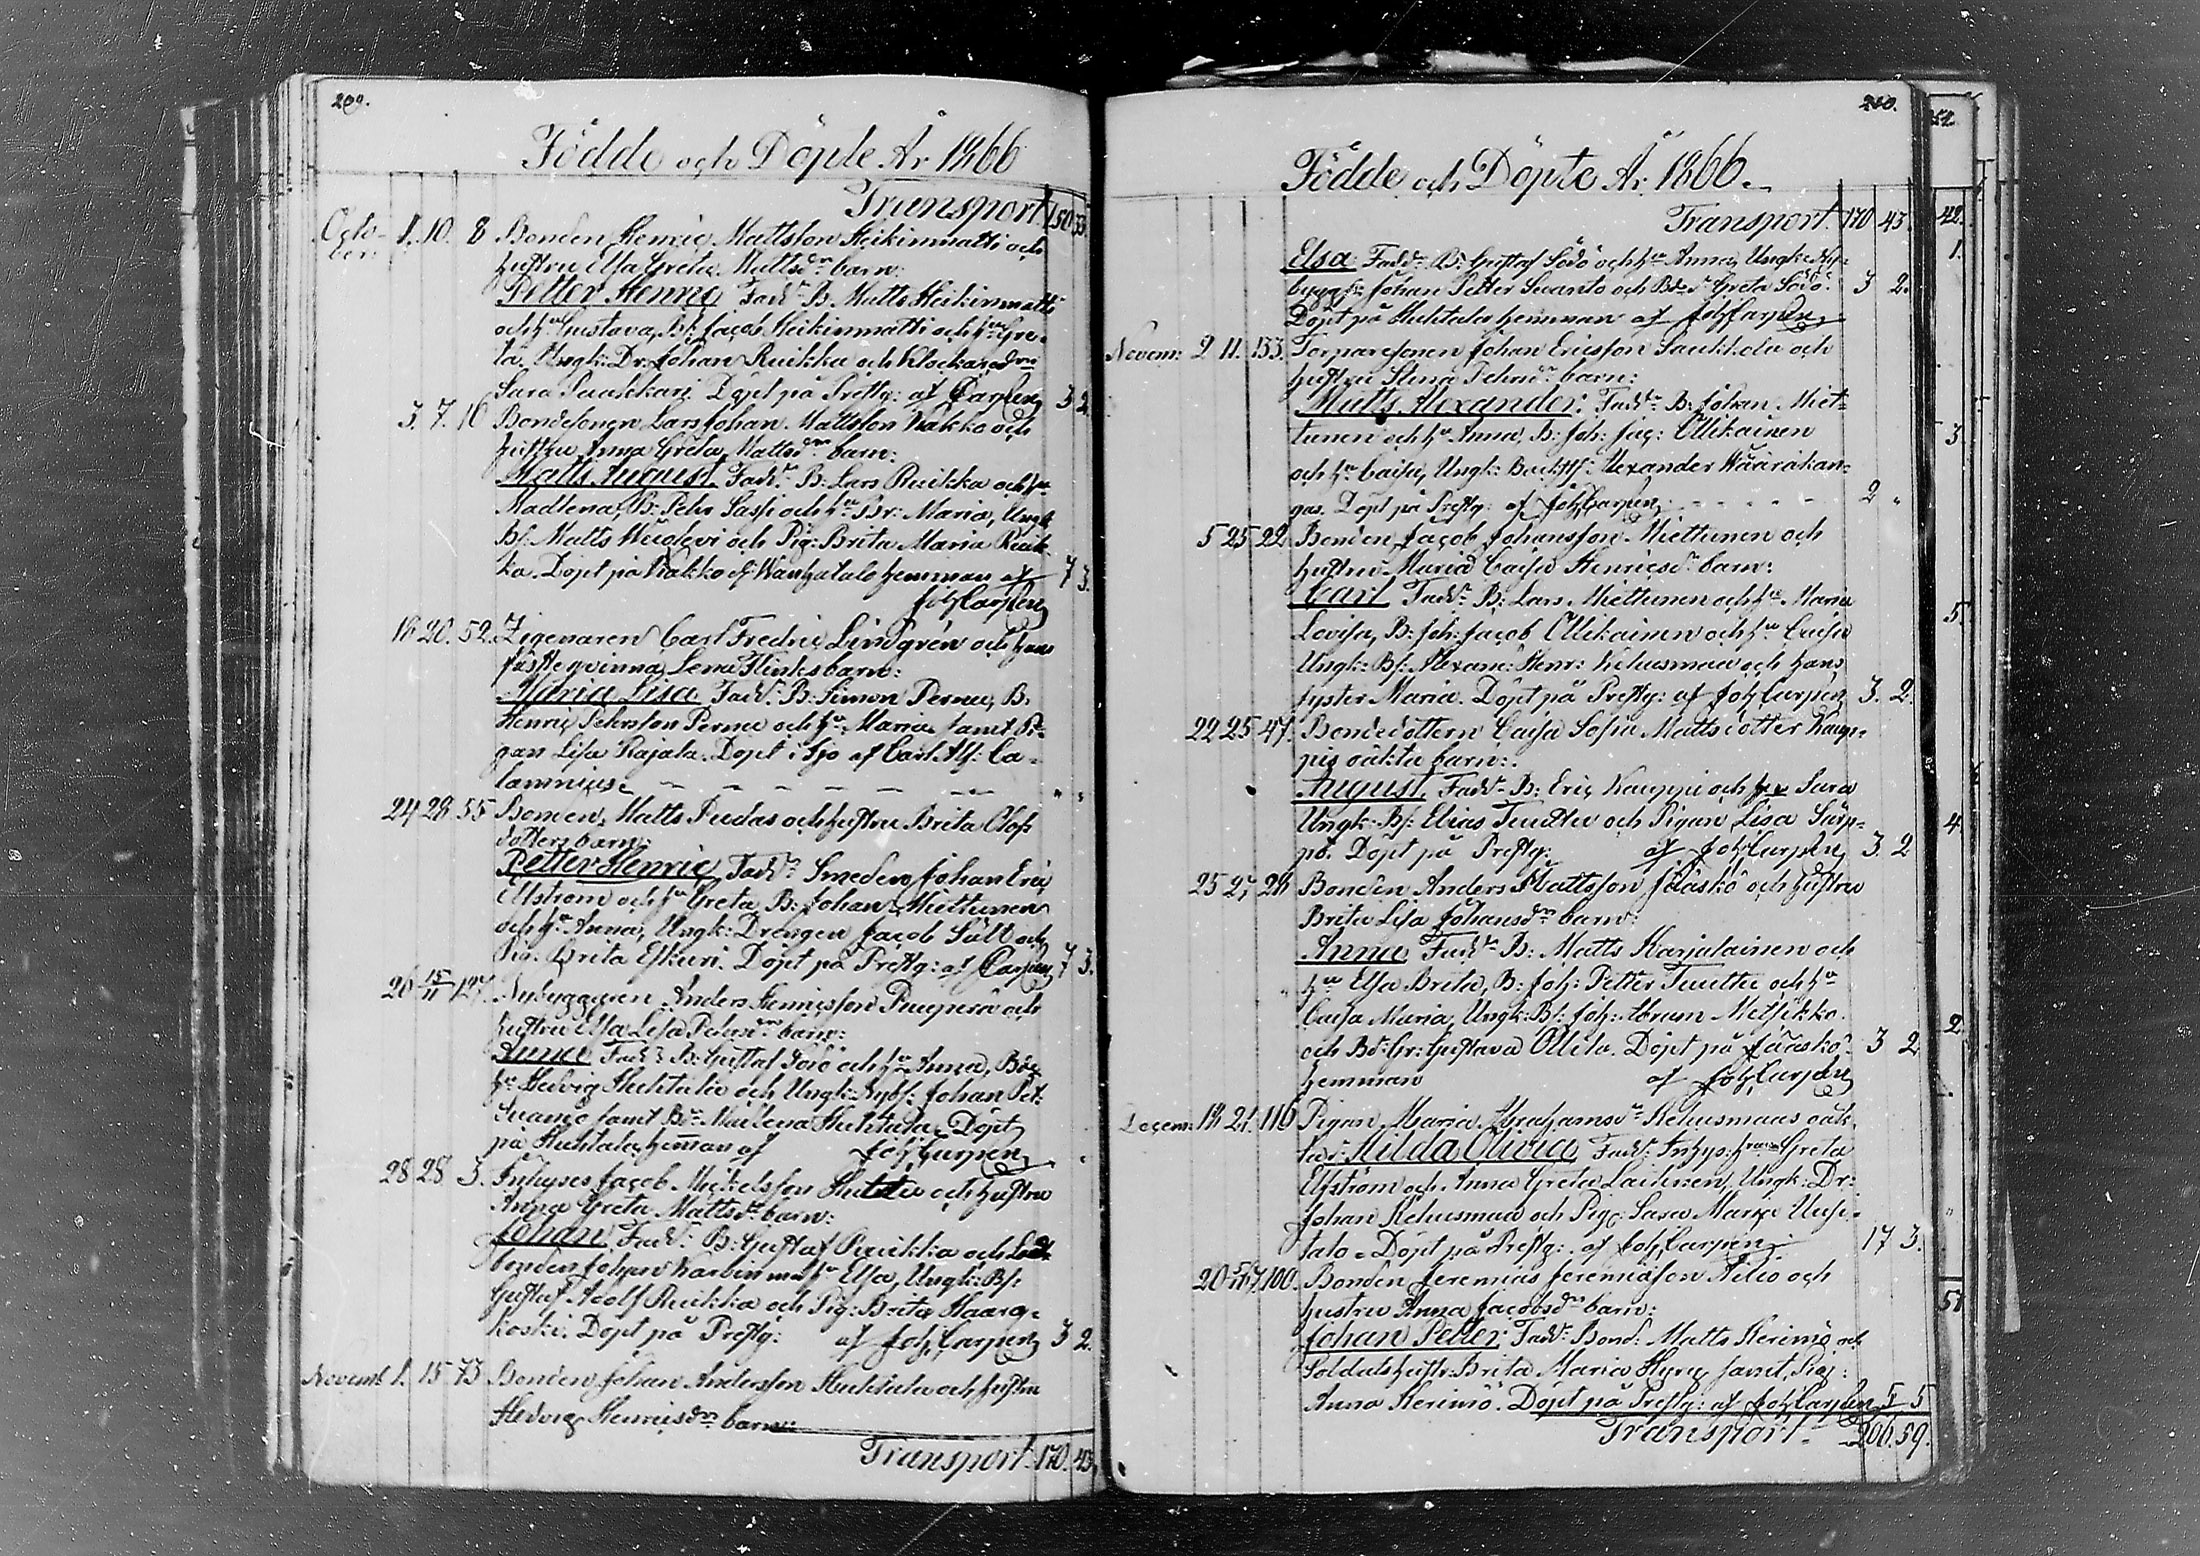 209.
Födde och Döpte År 1866
Transport. 150 33
Octo- 1. 10. 8 Bonden Henric Mattsson Heikinmatti och
ber: hustru Elsa Greta Mattsdr barn:
Petter Henric Faddr B. Matts Heikinmatti
och hu Gustava, B: Jacob Heikinmatti och hu Gre-
ta. Ungk: Dr. Johan Ruikka och Klockaredr
Sara Paukkari. Döpt på Prestg: af Carpén 3 2
3. 7. 10 Bondesonen Lars Johan Mattsson Kakko och
hustru Anna Greta Mattsdr barn:
Matts August. Faddr B: Lars Ruikka och hu
Madlena, B: Pehr Sassi och hu Br: Maria, Ungk
Bs: Matts och Pig: Brita Maria Ruik-
ka. Döpt på Kakko hemman af 7 3.
Joh Carpén
18 20. 52. Zigenaren Carl Fredric Lindgrén och hans
fästeqvinna Lena Flinks barn:
Maria Lisa Faddr B: Simon Pernu, B.
Henric Pehrsson Pernu och hu Maria samt Pi-
gan Lisa Rajala. Döpt i Sjo af Carl Alf: Ca-
lamnius
24 28 55 Bonden Matts Pudas och hustru Brita Olofs
dotters barn:
Petter Henric Faddr Smeden Johan Eric
Elfström och hu Greta, B: Johan Miettunen
och hu Anna, Ungk: Drengen Jacob Sält och
Pig. Brita Eskuri. Döpt på Prestg: af Carpén 7 3.
26 15/11 127. Nybyggaren Anders Henricsson och
hustru Elsa Lisa Pehrsdr barn:
Anna Faddr B: Gustaf Södö och hu Anna, Bde
hu Hedvig Huhtala och Ungk: Nybs: Johan Pet:
Suanto samt Bdr Madlena Huhtala. Döpt
på Huhtala hemman af Joh Carpén
28 28 3. Inhyses Jacob Mickelsson och hustru
Anna Greta Mattsdr barn:
Johan Faddr B: Gustaf Ruikka och Land-
bonden Johan Karbin med hu Elsa, Ungk: Bs:
Gustaf Adolf Ruikka och Pig: Brita Haara-
koski. Döpt på Prestg: af Joh Carpén 3 2.
Novemb 1. 15 73 Bonden Johan Andersson Huhtala och hustru
Hedvig Henricsdr barn:
Transport. 170. 43
210.
Födde och Döpte År 1866.
Transport. 170 43.
Elsa Faddr B: Gustaf Södö och hu Anna, Ungk: Ny-
byggs: Johan Petter Suanto och Bdr Greta Södö. 3 2.
Döpt på Huhtala hemman af Joh Carpén
Novem: 2 11. 133. Torparesonen Johan Ericsson Saukkola och
hustru Stina Pehrsdr barn:
Matts Alexander: Faddr B: Johan Miet-
tunen och hu Anna, B: Joh: Jac: Ollikainen
och hu Caisa, Ungk: Backst: Alexander Wääräkan-
gas. Döpt på Prestg: af Joh Carpén 2
5 25 22 Bonden Jacob Johansson Miettunen och
hustru Maria Caisa Henricsdr barn:
Carl Faddr B: Lars Miettunen och hu Maria
Lovisa, B: Joh: Jacob Ollikainen och hu Caisa
Ungk: Bs: Alexand: Henr: Kehusmaa och hans
syster Maria. Döpt på Prestg: af Joh Carpén 3. 2.
22 25 47. Bondedottern Caisa Sofia Mattsdotter Kaup-
pis oäkta barn:
August Faddr B: Eric Kauppi och hu Sara
Ungk: Bs: Elias Tuuttu och Pigan Lisa Särp-
pä. Döpt på Prestg: af Joh Carpén 3. 2
25 27 28 Bonden Anders Mattsson Jääskö och hustru
Brita Lisa Johansdr barn:
Anna Faddr B: Matts Karjalainen och
hu Elsa Brita, B: Joh: Petter Tuuttu och hu
Caisa Maria, Ungk: Bs: Joh: Abram Metsikkö
och Bd: Gr: Gustava Ollila. Döpt på Jääskö 3 2
hemman af Joh Carpén
Decem: 18 21. 116 Pigan Maria Abrahamsdr Kehusmaas oäk-
ta: Hilda Olivia Faddr: Inhys: hu Greta
Elfström och Anna Greta Laitinen, Ungk: Dr:
Johan Kehusmaa och Pig: Sara Maria Uusi-
talo. Döpt på Prestg: af Joh Carpén 17 3.
20 100. Bonden Jeremias Jeremiasson Niliö och
hustru Anna Jacobsdr barn:
Johan Petter Faddr: Bond: Matts Kerimö och
Soldatshustr: Brita Maria Hyry samt Pig:
Anna Kerimö. Döpt på Prestg: af Joh Carpén 5 5
Transport. 206. 59.
51
42.
1.
3.
5.
4.
2.
51